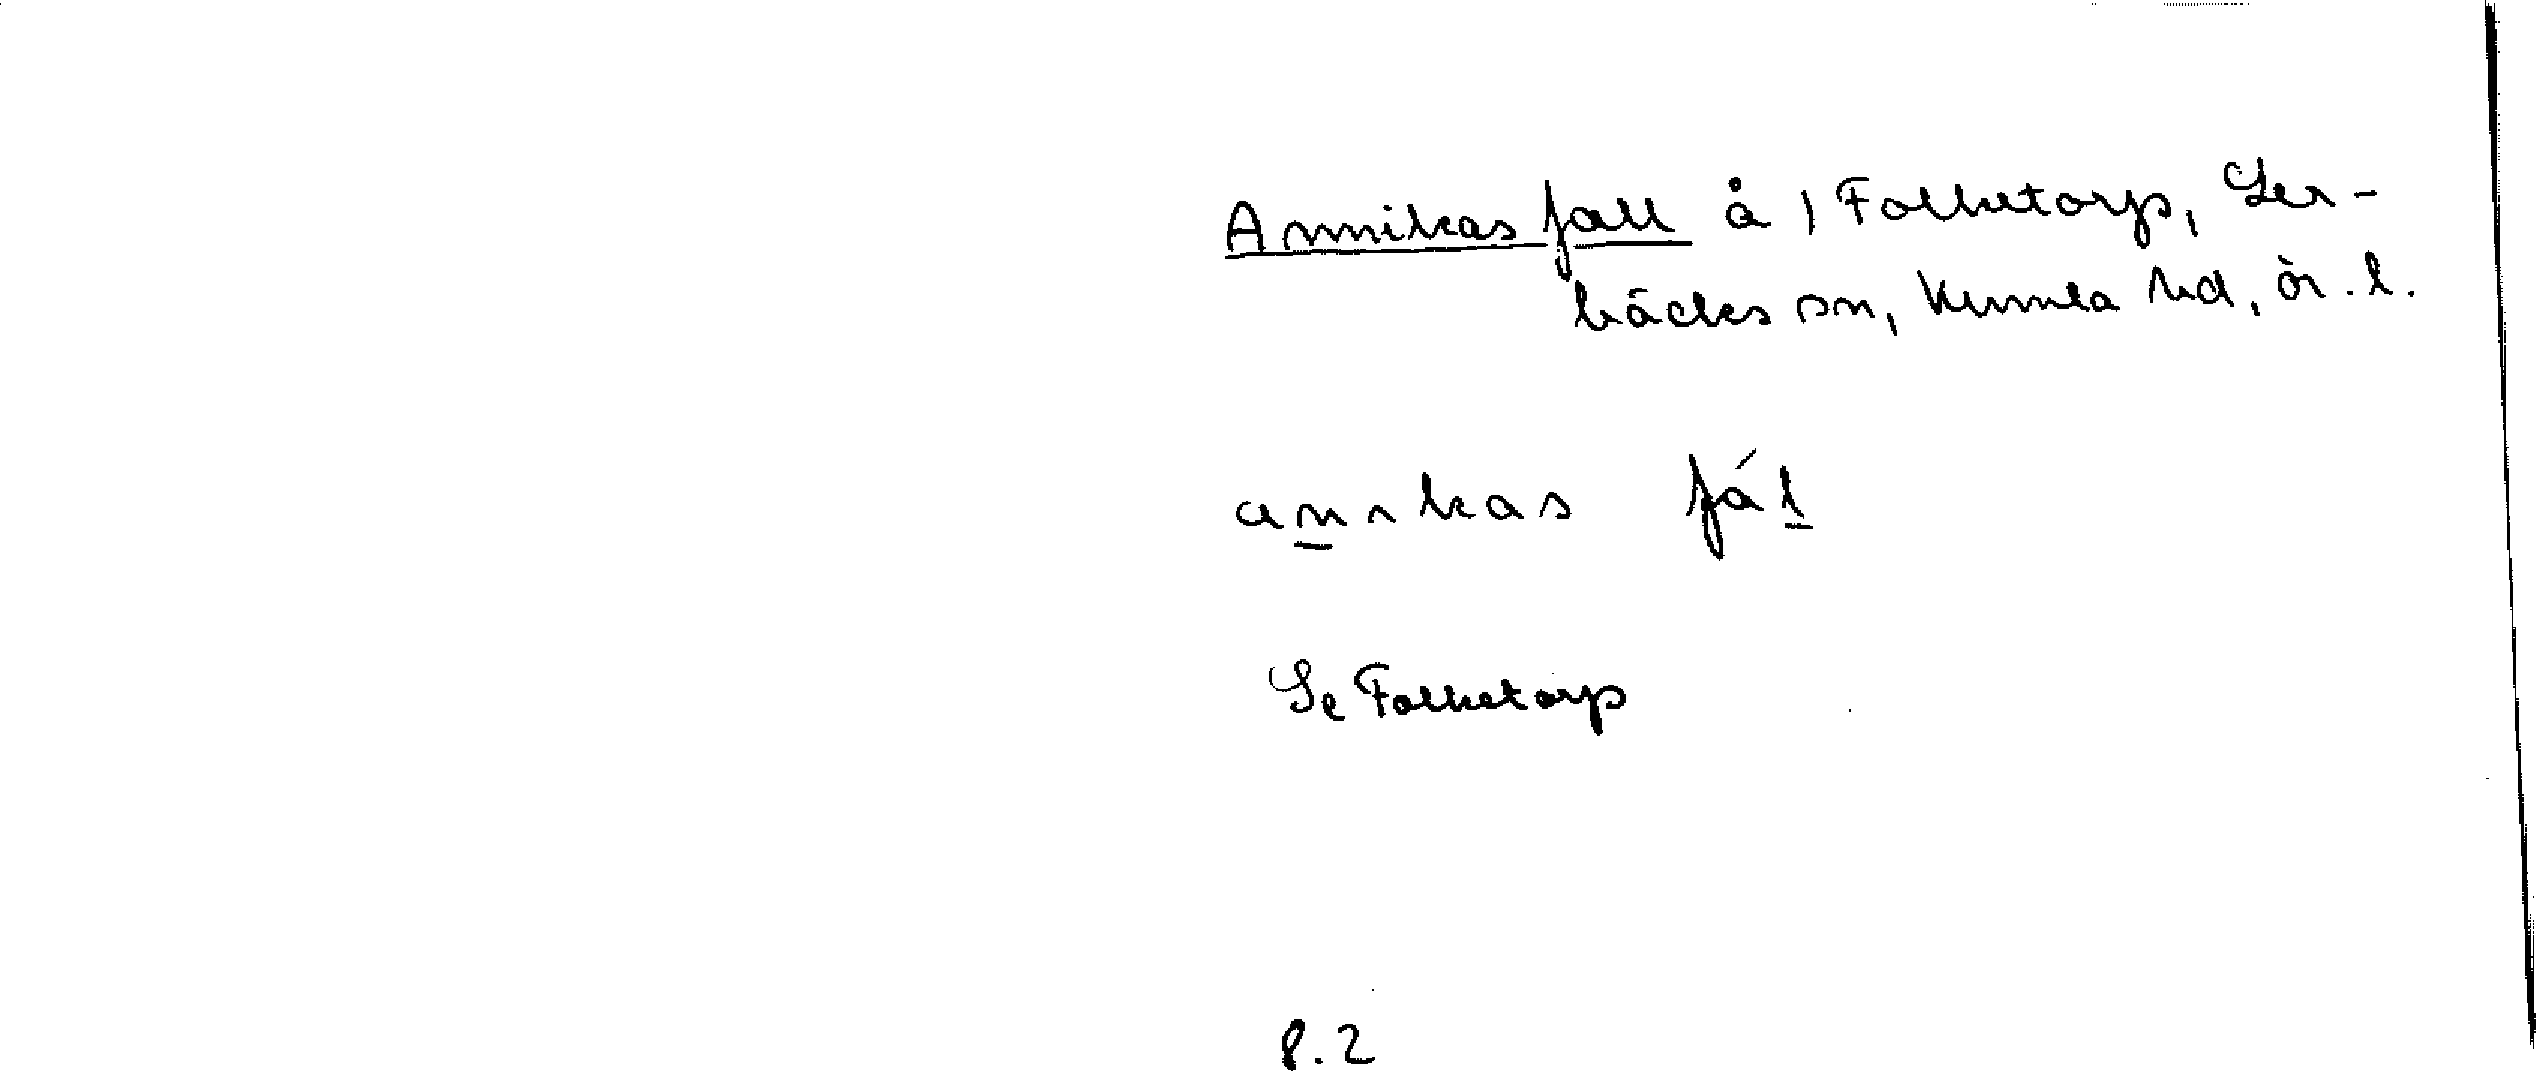 Annikas fall å 1 Folketorp, Ler-
bäcks sn, Kumla hd, ör. l.
anıkas fál
Se Folketorp
P. 2